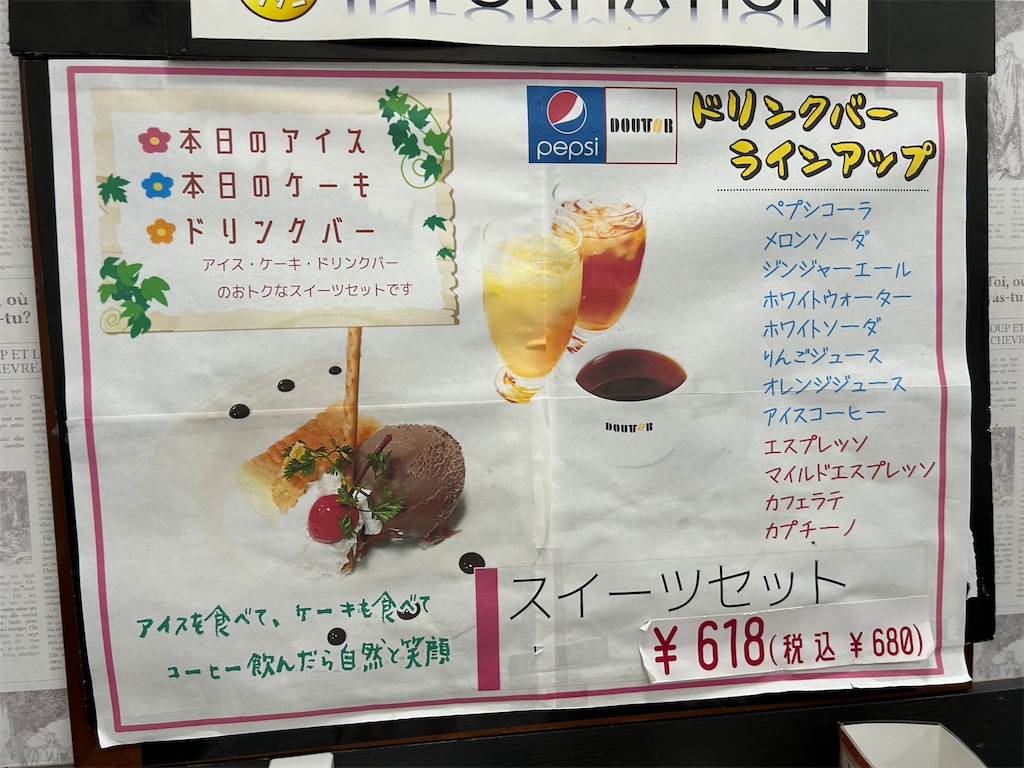 INFORMATION
本日のアイス
本日のケーキ
ドリンクバー
アイス・ケーキ・ドリンクバー
のおトクなスイーツセットです
pepsi
DOUTOR
ドリンクバー
ラインアップ
ペプシコーラ
メロンソーダ
ジンジャーエール
ホワイトウォーター
ホワイトソーダ
りんごジュース
オレンジジュース
アイスコーヒー
エスプレッソ
マイルドエスプレッソ
カフェラテ
カプチーノ
DOUTOR
アイスを食べて、ケーキも食べて
コーヒー飲んだら自然と笑顔
スイーツセット
¥618(税込¥680)